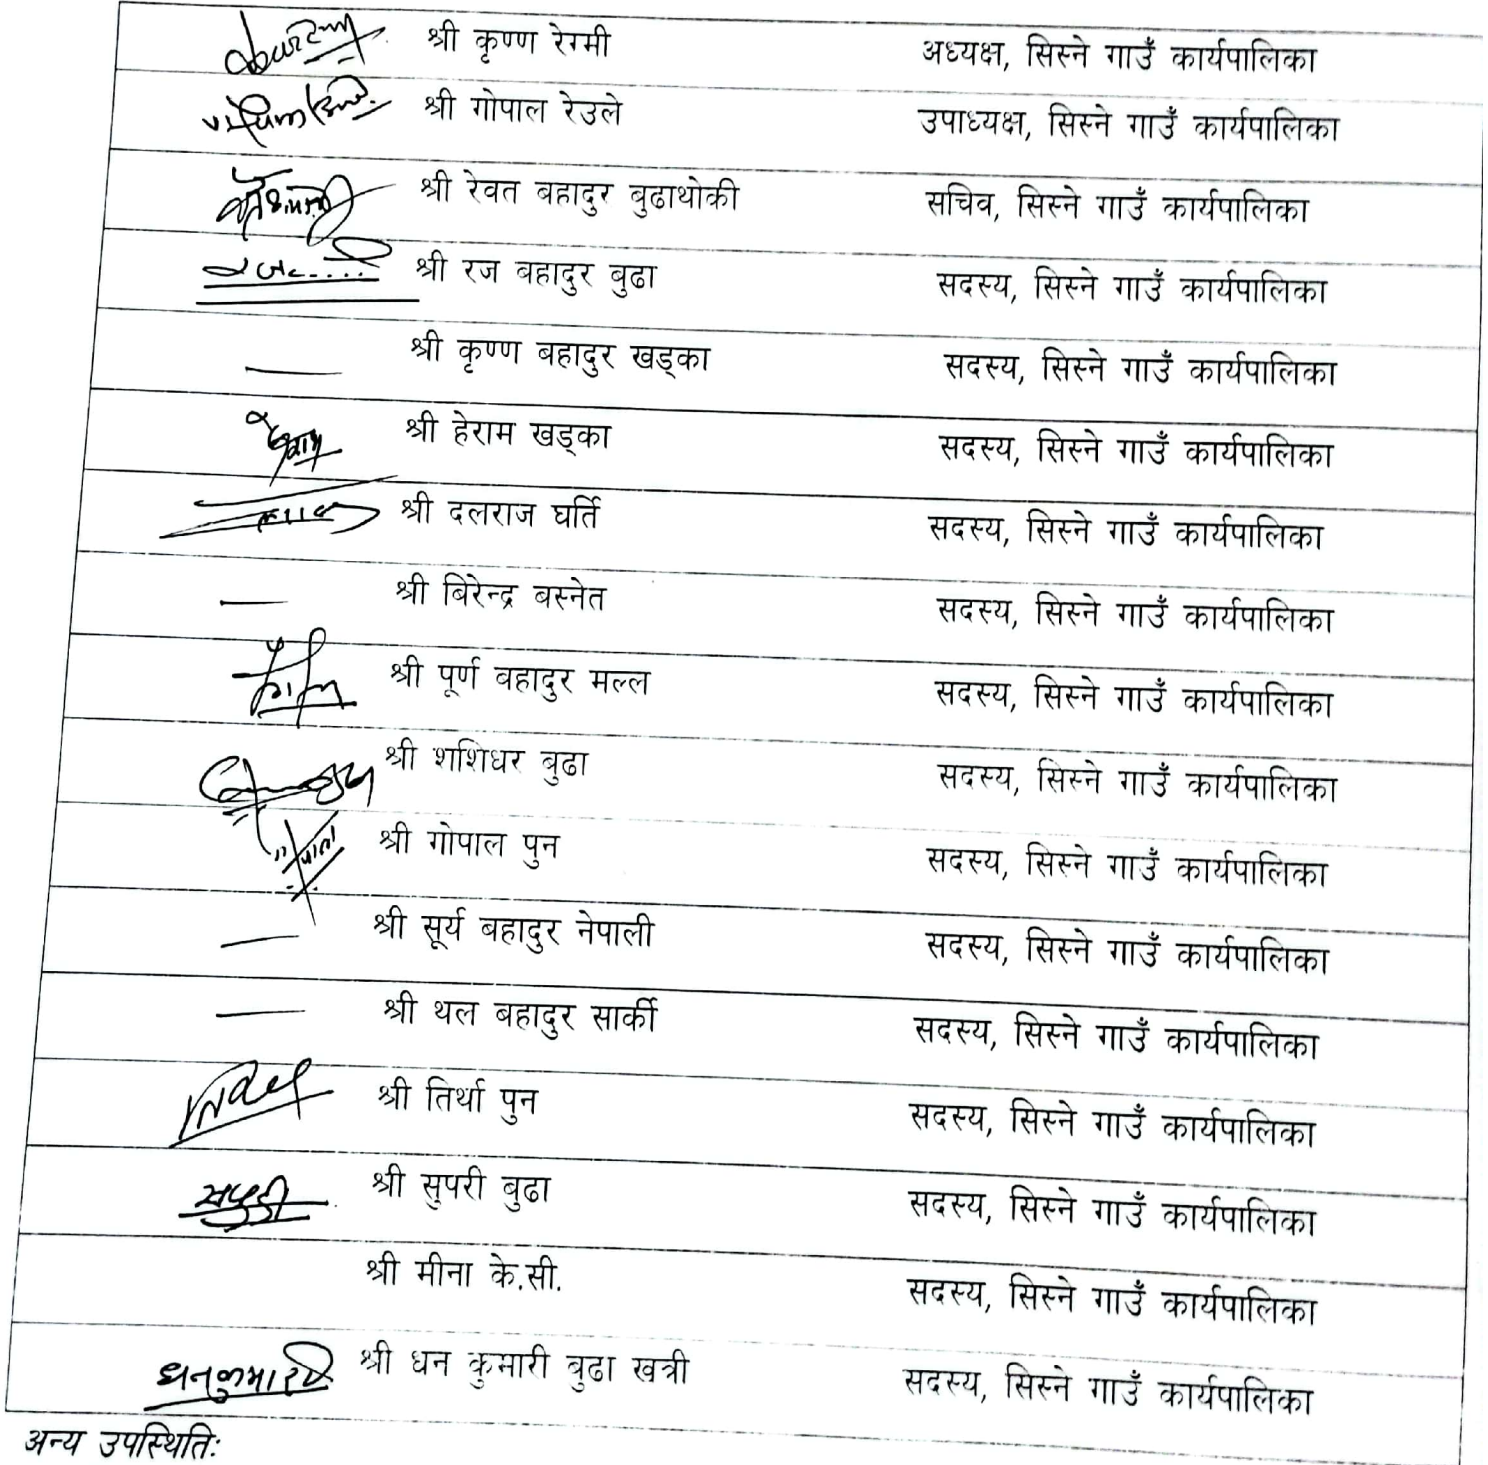 श्री कृष्ण रेग्मी अध्यक्ष, सिस्ने गाउँ कार्यपालिका
श्री गोपाल रेउले उपाध्यक्ष, सिस्ने गाउँ कार्यपालिका
श्री रेवत बहादुर बुढाथोकी सचिव, सिस्ने गाउँ कार्यपालिका
श्री रज बहादुर बुढा सदस्य, सिस्ने गाउँ कार्यपालिका
श्री कृष्ण बहादुर खड्का सदस्य, सिस्ने गाउँ कार्यपालिका
श्री हेराम खड्का सदस्य, सिस्ने गाउँ कार्यपालिका
श्री दलराज घर्ति सदस्य, सिस्ने गाउँ कार्यपालिका
श्री बिरेन्द्र बस्नेत सदस्य, सिस्ने गाउँ कार्यपालिका
श्री पूर्ण बहादुर मल्ल सदस्य, सिस्ने गाउँ कार्यपालिका
श्री शशिधर बुढा सदस्य, सिस्ने गाउँ कार्यपालिका
श्री गोपाल पुन सदस्य, सिस्ने गाउँ कार्यपालिका
श्री सूर्य बहादुर नेपाली सदस्य, सिस्ने गाउँ कार्यपालिका
श्री थल बहादुर सार्की सदस्य, सिस्ने गाउँ कार्यपालिका
श्री तिर्था पुन सदस्य, सिस्ने गाउँ कार्यपालिका
श्री सुपरी बुढा सदस्य, सिस्ने गाउँ कार्यपालिका
श्री मीना के.सी. सदस्य, सिस्ने गाउँ कार्यपालिका
श्री धन कुमारी बुढा खत्री सदस्य, सिस्ने गाउँ कार्यपालिका
अन्य उपस्थितिः